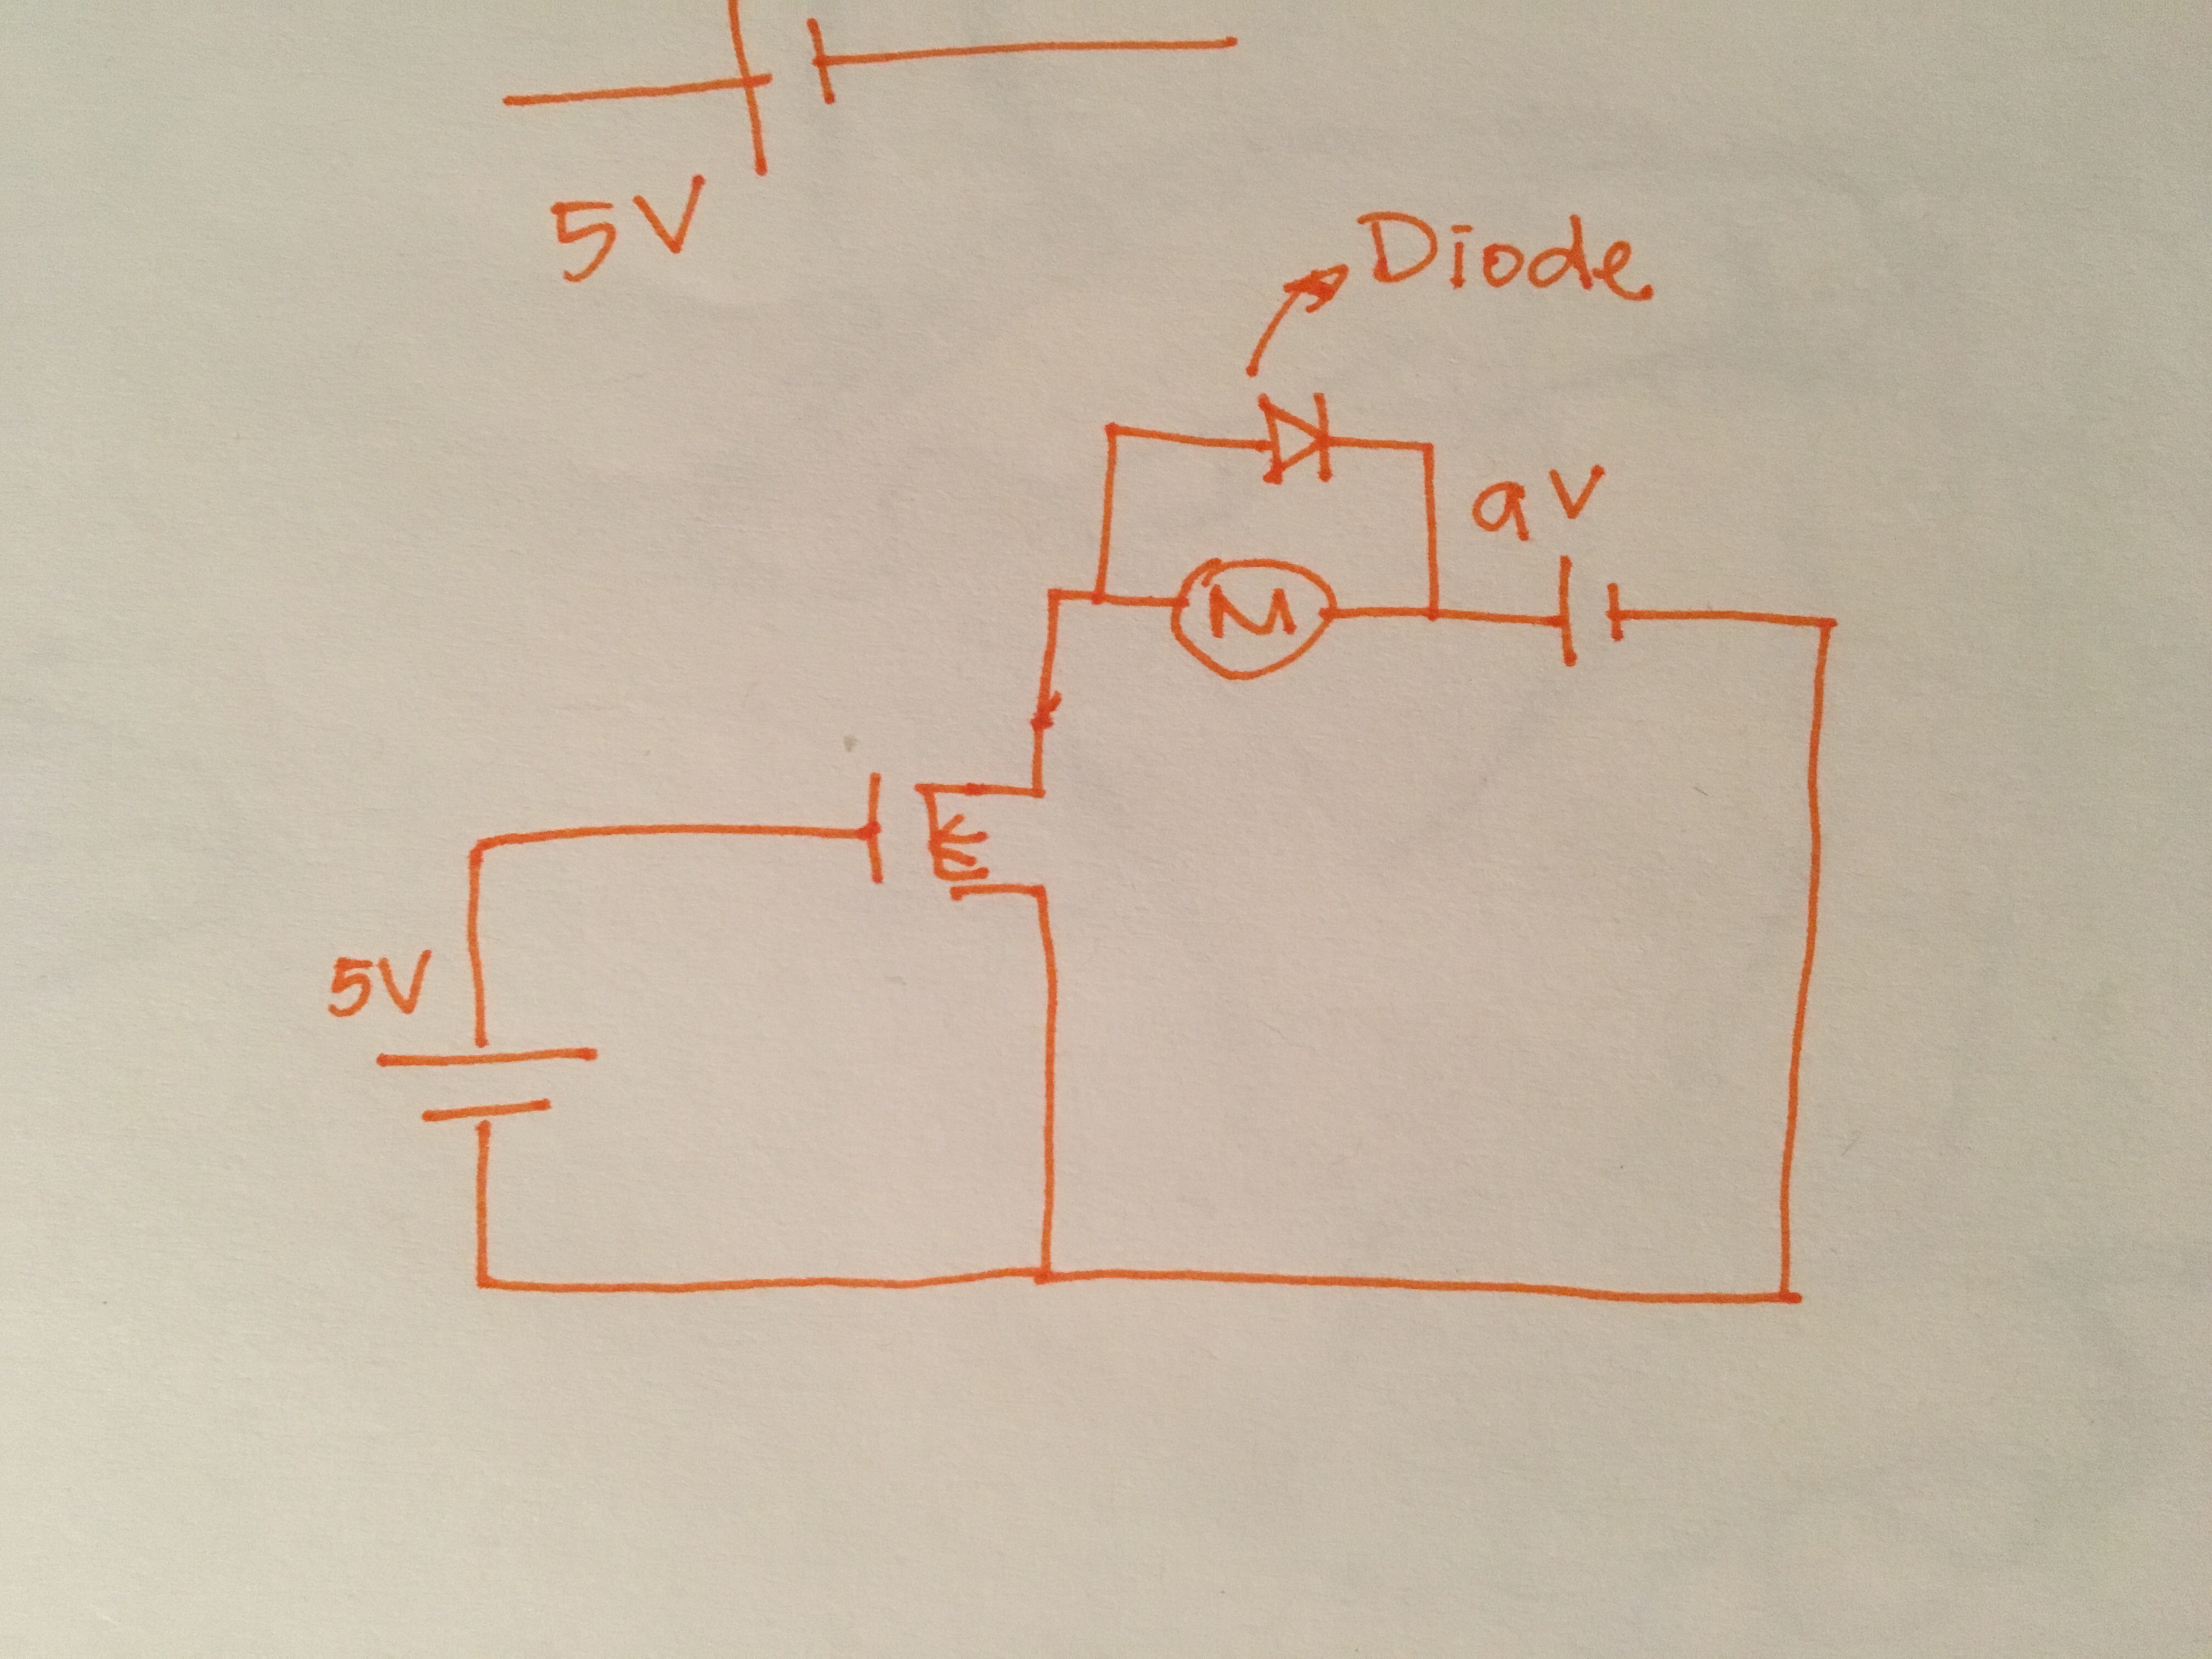 5V
Diode
9V
M
5V